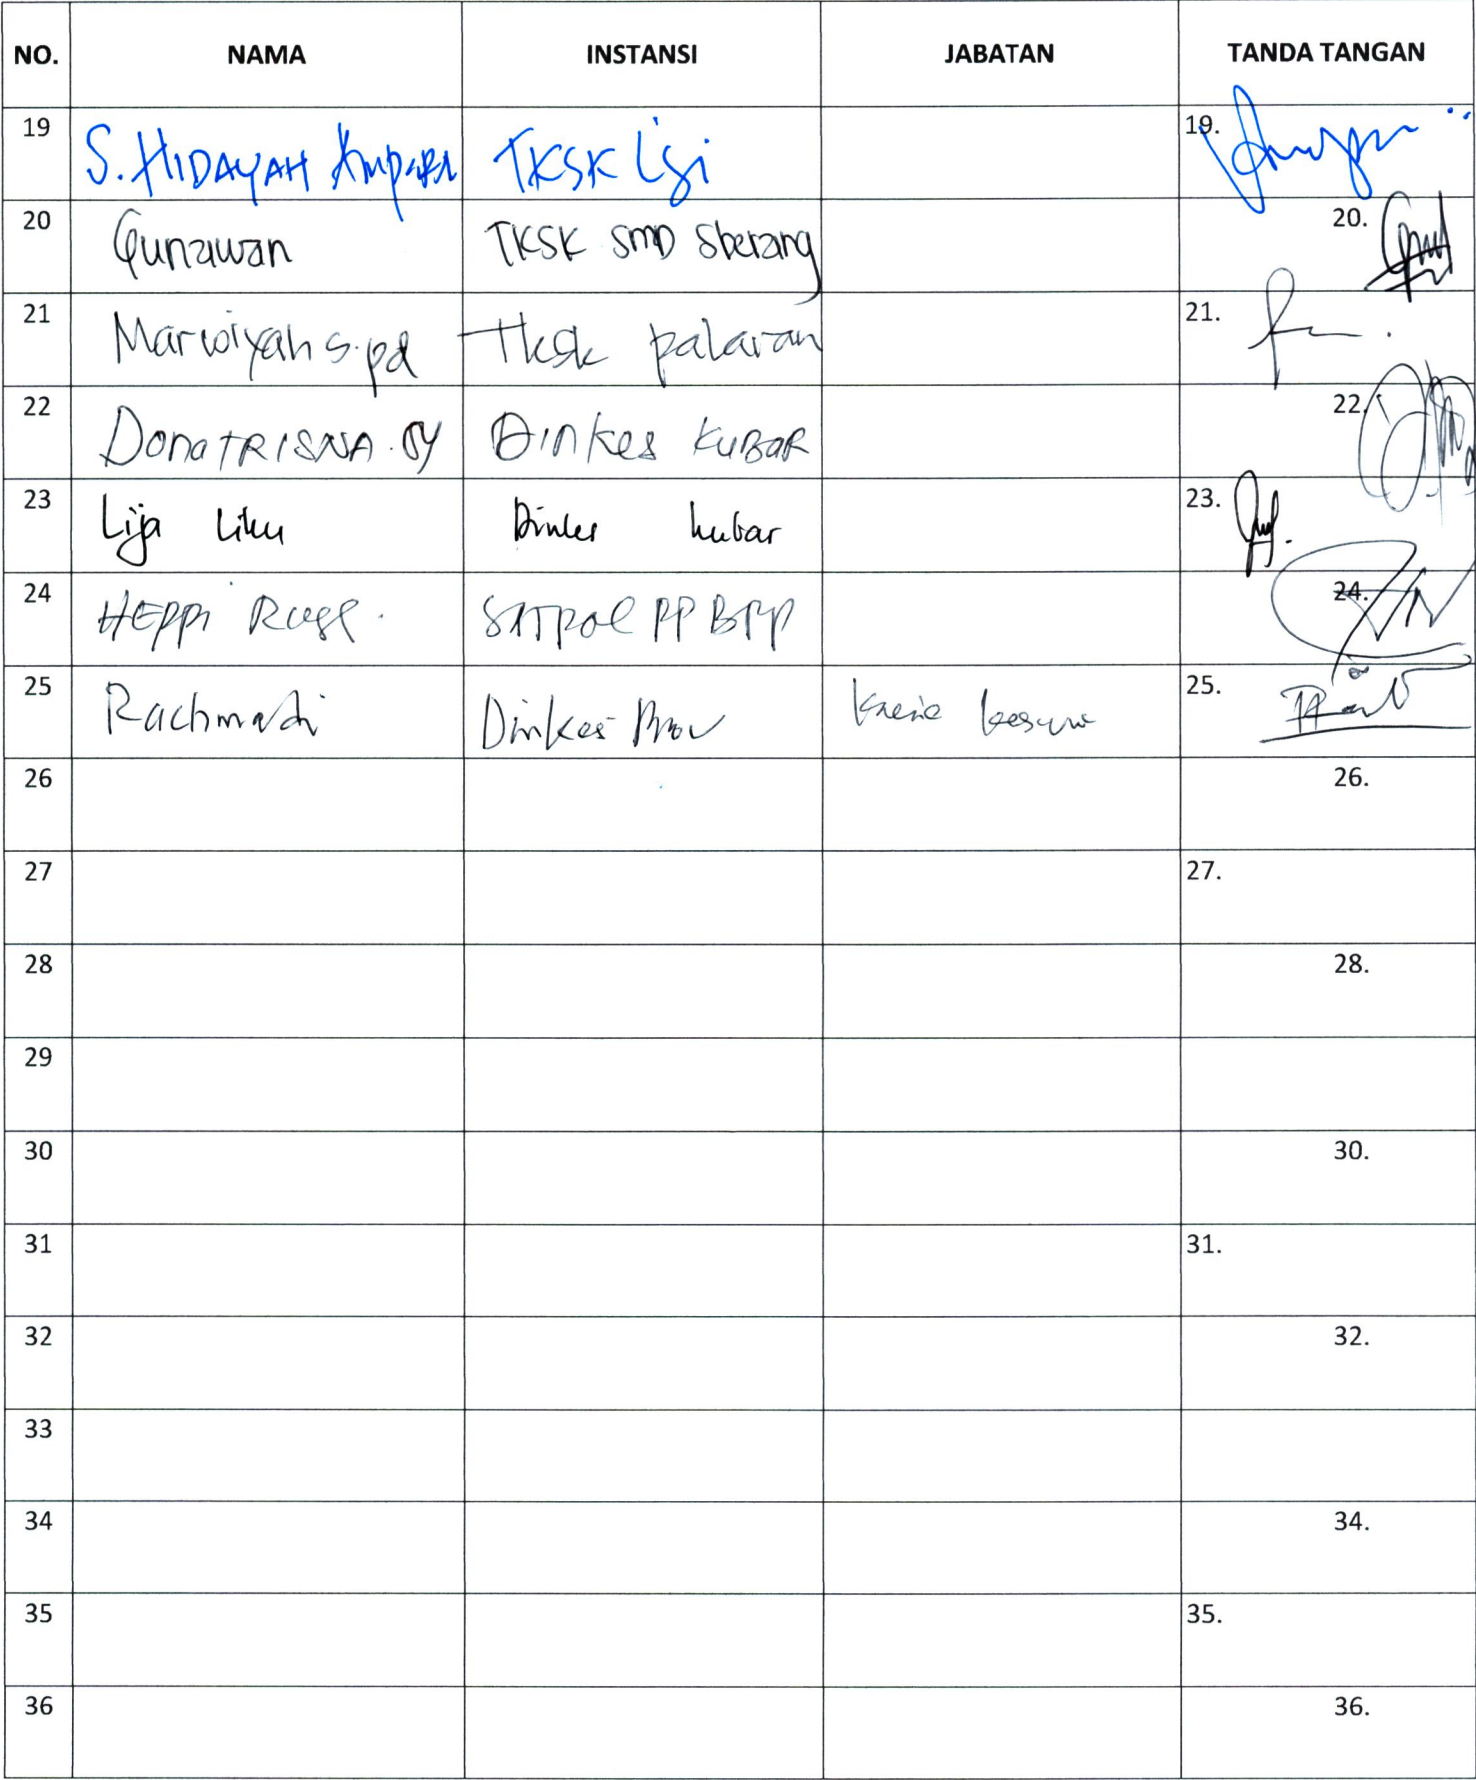 NO. NAMA INSTANSI JABATAN TANDA TANGAN
19 S. HIDAYAH TKSK 19.
20 Gunawan TKSK SMD Sberang 20.
21 Marwiyah S.pd Tksk palaran 21.
22 Dona TRISNA. Dinkes KUBAR 22.
23 Lija Liku Dinkes kubar 23.
24 HEPPI SATPOL PP BPP 24.
25 Rachmadi Dinkes Prov 25.
26 26.
27 27.
28 28.
29
30 30.
31 31.
32 32.
33
34 34.
35 35.
36 36.